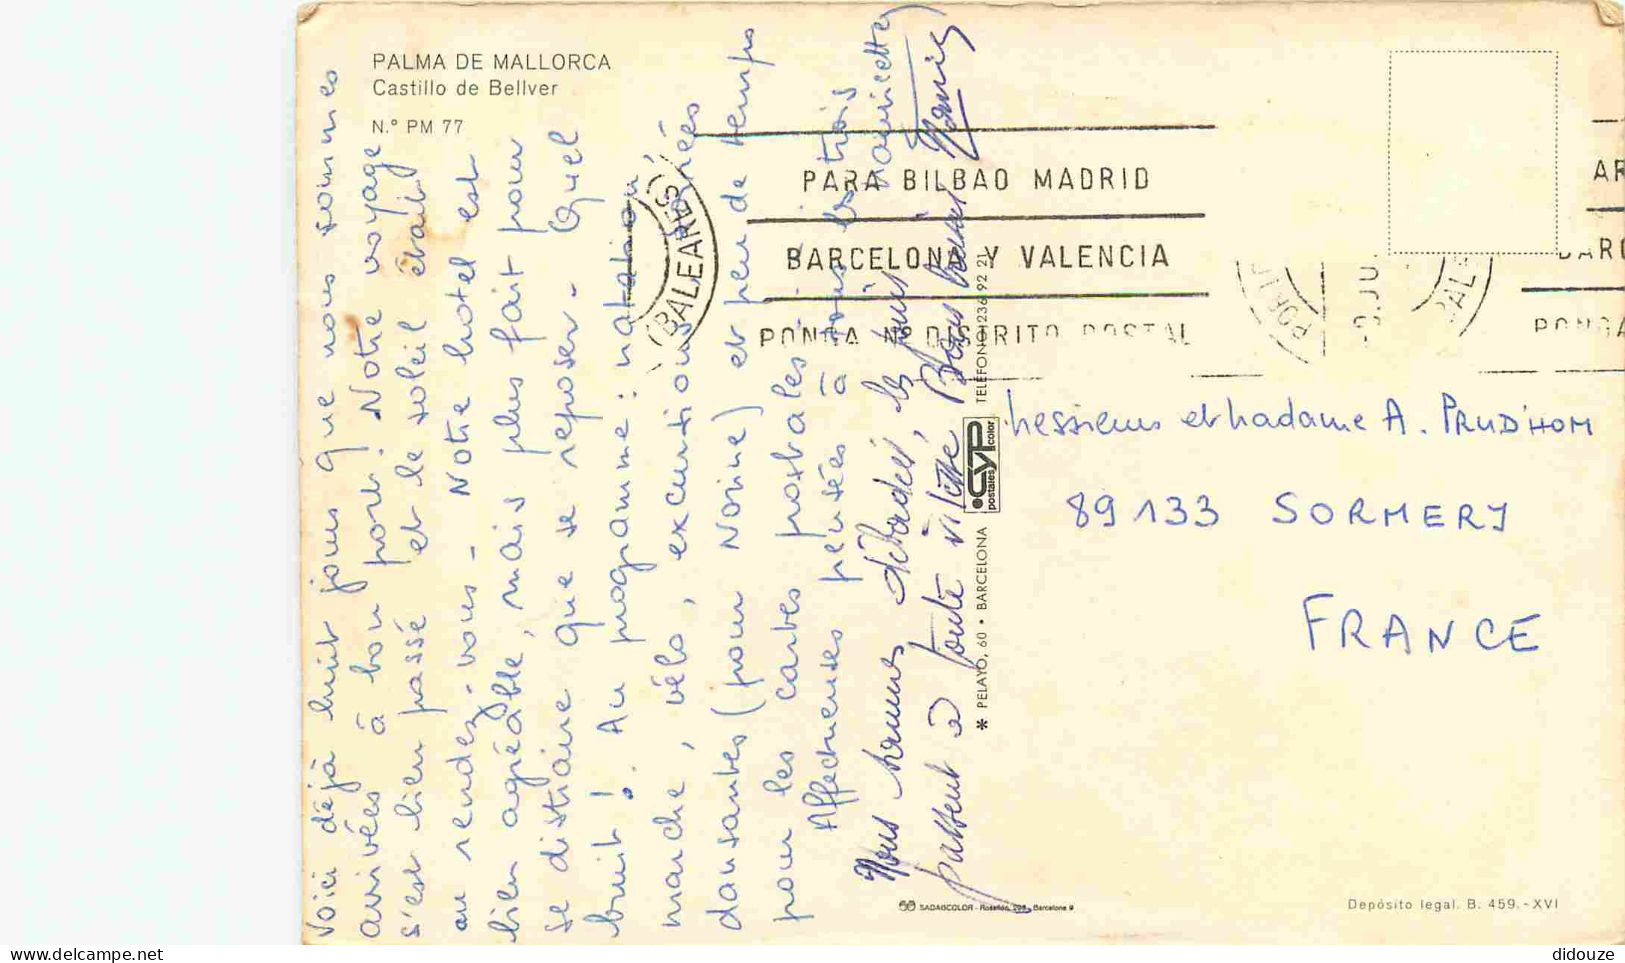 PALMA DE MALLORCA
Castillo de Bellver
N.º PM 77
Voici déjà huit jours que nous sommes
arrivées à bon port! Notre voyage
s'est bien passé et le soleil était
au rendez-vous - Notre hôtel est
bien agréable, mais plus fait pour
se distraire que se reposer - Quel
bruit ! Au programme : natation
marche, vélo, excursions, soirées
dansantes (pour Nonine) et peu de temps
pour les cartes postales !
Affectueuses pensées à tous les trois
Nauicette
Nous sommes débordés, les jours
passent à toute vitesse Bons baisers
(BALEARES)
PARA BILBAO MADRID
BARCELONA Y VALENCIA
PONGA Nº DISTRITO POSTAL
AR
BARC
PONGA
✻ PELAYO, 60 • BARCELONA
CYP
postales color
TELEFONO 236 92 21
Messieurs et Madame A. PRUD'HOM
89133 SORMERY
FRANCE
SADAGCOLOR - Rosellón, 298 - Barcelona 9
Depósito legal. B. 459.-XVI
didouze